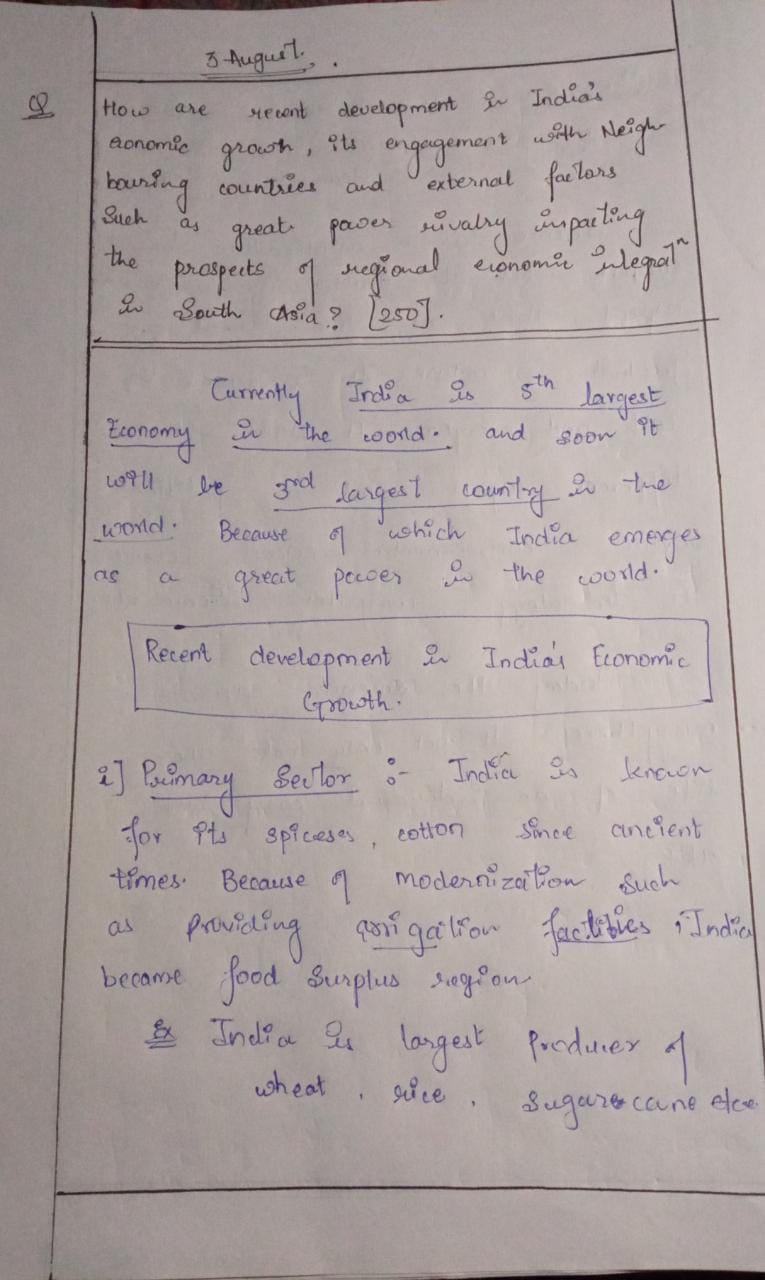 3 August.
Q How are recent development in India's
economic growth, its engagement with Neigh-
bouring countries and external factors
Such as great power rivalry impacting
the prospects of regional economic integratⁿ
in South Asia? [250].
Currently India is 5th largest
Economy in the world. and soon it
will be 3rd largest country in the
world. Because of which India emerges
as a great power in the world.
Recent development in India's Economic
Growth.
i] Primary Sector :- India is known
for its spiceses, cotton since ancient
times. Because of modernization such
as providing irrigation faclities, India
became food Surplus region
Ex India is largest producer of
wheat, rice, sugare cane etc.